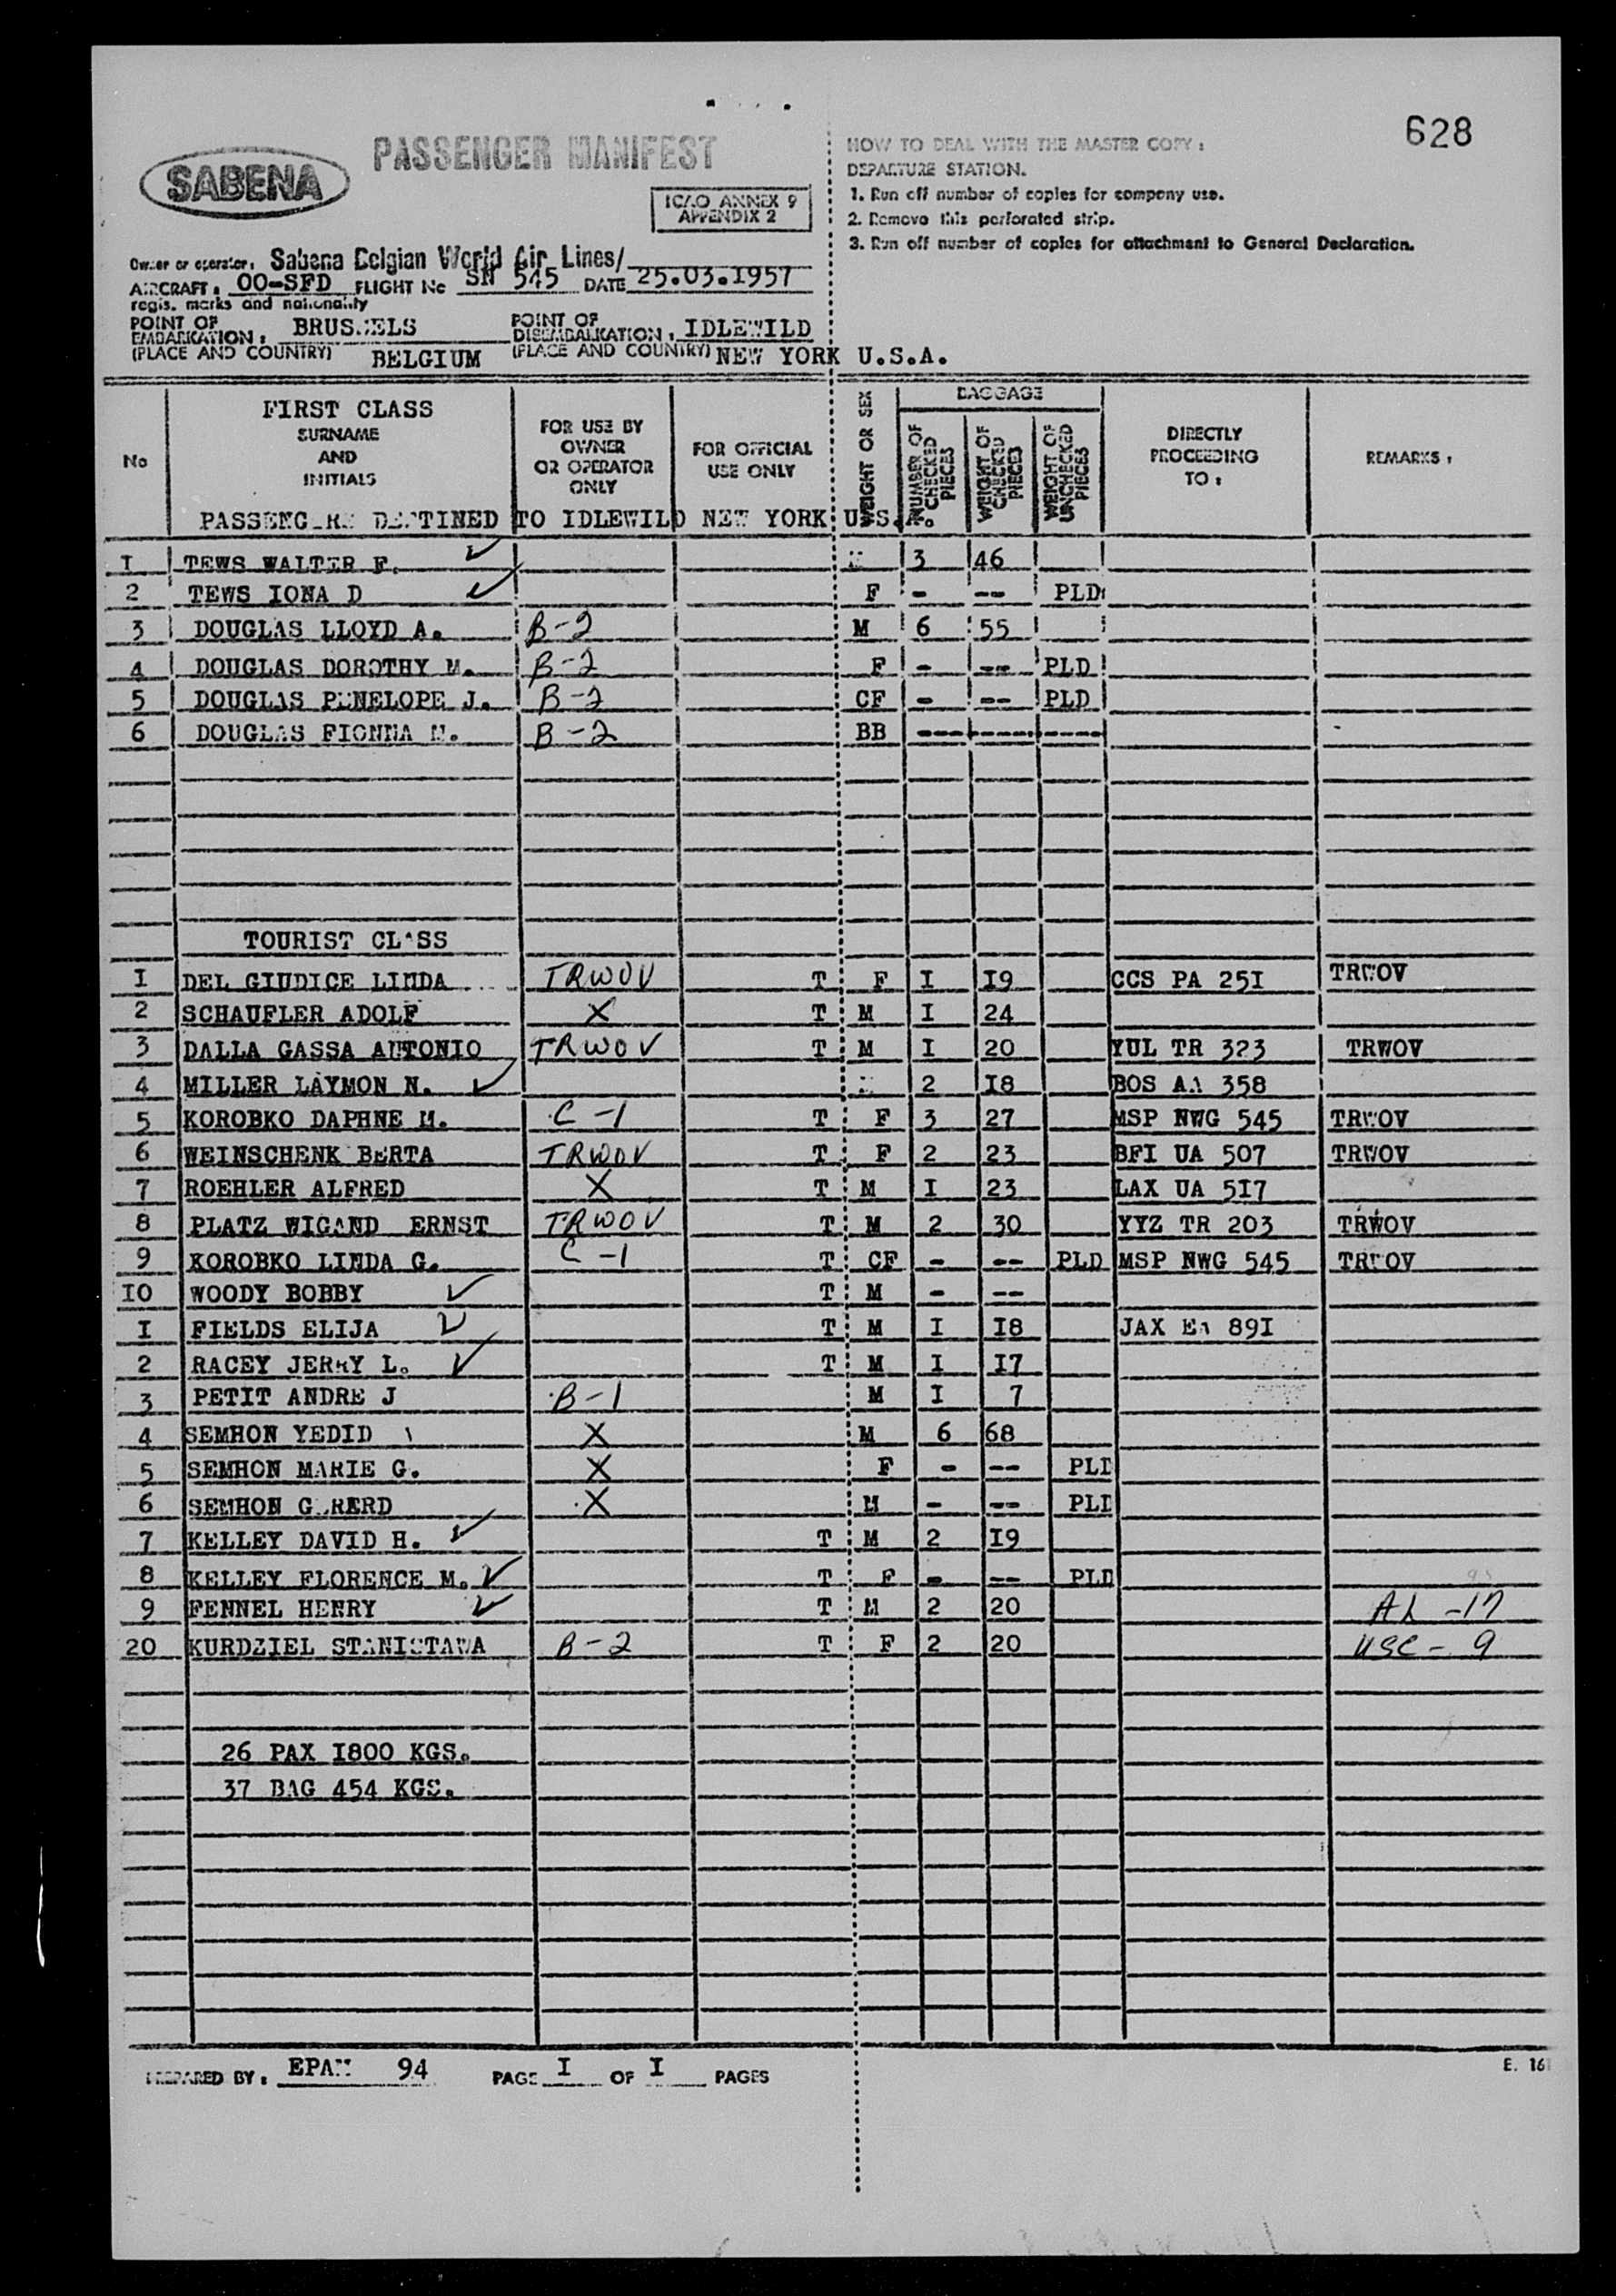 628
PASSENGER MANIFEST
SABENA
ICAO ANNEX 9
APPENDIX 2
HOW TO DEAL WITH THE MASTER COPY :
DEPARTURE STATION.
1. Run off number of copies for company use.
2. Remove this perforated strip.
3. Run off number of copies for attachment to General Declaration.
Owner or operator: Sabena Belgian World Air Lines/
AIRCRAFT : OO-SFD FLIGHT No SN 545 DATE 25.03.1957
regis. marks and nationality
POINT OF EMBARKATION : BRUSSELS POINT OF DISEMBARKATION : IDLEWILD
(PLACE AND COUNTRY) BELGIUM (PLACE AND COUNTRY) NEW YORK U.S.A.
No FIRST CLASS SURNAME AND INITIALS FOR USE BY OWNER OR OPERATOR ONLY FOR OFFICIAL USE ONLY WEIGHT OR SEX BAGGAGE NUMBER OF CHECKED PIECES WEIGHT OF CHECKED PIECES WEIGHT OF UNCHECKED PIECES DIRECTLY PROCEEDING TO : REMARKS :
PASSENGERS DESTINED TO IDLEWILD NEW YORK U.S.A.
I TEWS WALTER F. M 3 46
2 TEWS IONA D F - -- PLD
3 DOUGLAS LLOYD A. B-2 M 6 55
4 DOUGLAS DOROTHY M. B-2 F - -- PLD
5 DOUGLAS PENELOPE J. B-2 CF - -- PLD
6 DOUGLAS FIONNA M. B-2 BB --- ---- ----
TOURIST CLASS
I DEL GIUDICE LINDA TRWOV T F I I9 CCS PA 25I TRWOV
2 SCHAUFLER ADOLF X T M I 24
3 DALLA GASSA ANTONIO TRWOV T M I 20 YUL TR 323 TRWOV
4 MILLER LAYMON N. M 2 I8 BOS AA 358
5 KOROBKO DAPHNE M. C-1 T F 3 27 MSP NWG 545 TRWOV
6 WEINSCHENK BERTA TRWOV T F 2 23 BFI UA 507 TRWOV
7 ROEHLER ALFRED X T M I 23 LAX UA 5I7
8 PLATZ WIGAND ERNST TRWOV T M 2 30 YYZ TR 203 TRWOV
9 KOROBKO LINDA G. C-1 T CF - -- PLD MSP NWG 545 TRWOV
IO WOODY BOBBY T M - --
I FIELDS ELIJA T M I I8 JAX EA 89I
2 RACEY JERRY L. T M I I7
3 PETIT ANDRE J B-1 M I 7
4 SEMHON YEDID X M 6 68
5 SEMHON MARIE G. X F - -- PLD
6 SEMHON GERERD X M - -- PLD
7 KELLEY DAVID H. T M 2 I9
8 KELLEY FLORENCE M. T F - -- PLD
9 FENNEL HENRY T M 2 20 AL -17
20 KURDZIEL STANISTAWA B-2 T F 2 20 USC - 9
26 PAX I800 KGS.
37 BAG 454 KGS.
PREPARED BY : 94 PAGE I OF I PAGES
E. 161